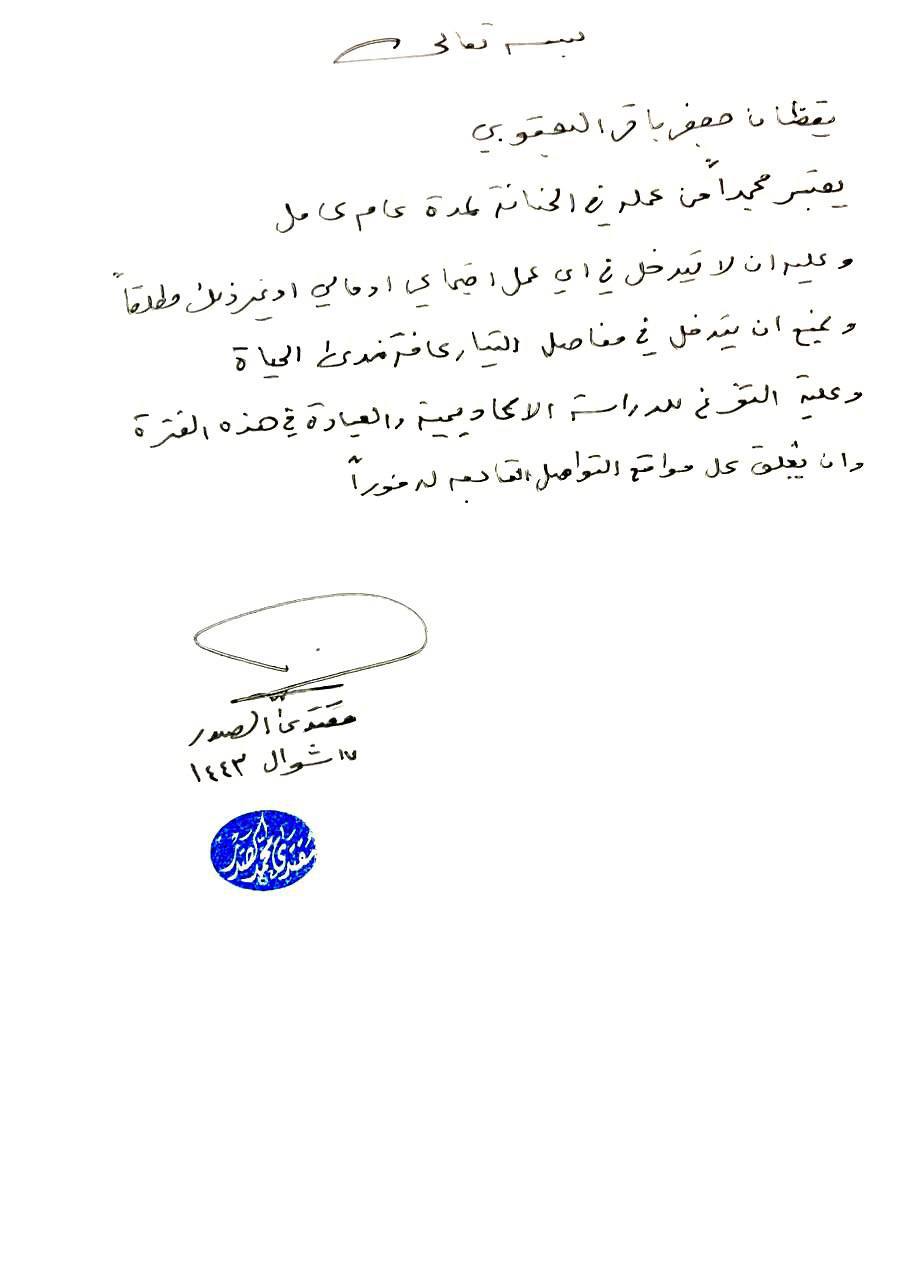 بسمه تعالى
يقظان جعفر باقر اليعقوبي
يعتبر مجمداً من عمله في الحنانة لمدة عام كامل
وعليه ان لا يتدخل في اي عمل اجتماعي او مالي او غير ذلك مطلقاً
ويمنع ان يتدخل في مفاصل التيار كافة مدى الحياة
وعليه التفرغ للدراسة الاكاديمية والعبادة في هذه الفترة
وان يُغلق كل مواقع التواصل التابعه له فوراً
مقتدى الصدر
١٧ شوال ١٤٤٣
مقتدى محمد الصدر